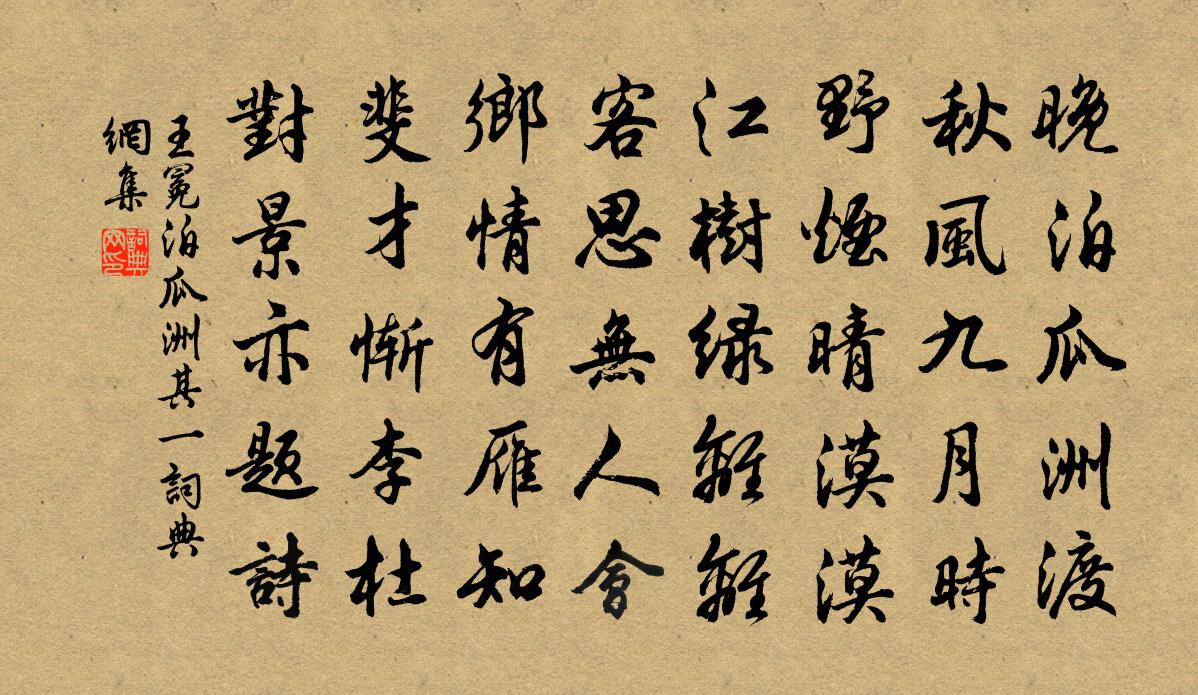 晚泊瓜洲渡
秋風九月時
野煙晴漠漠
江樹緑離離
客思無人會
鄉情有雁知
斐才慚李杜
對景亦題詩
王冕泊瓜洲其一詞典
網集
詞典网印